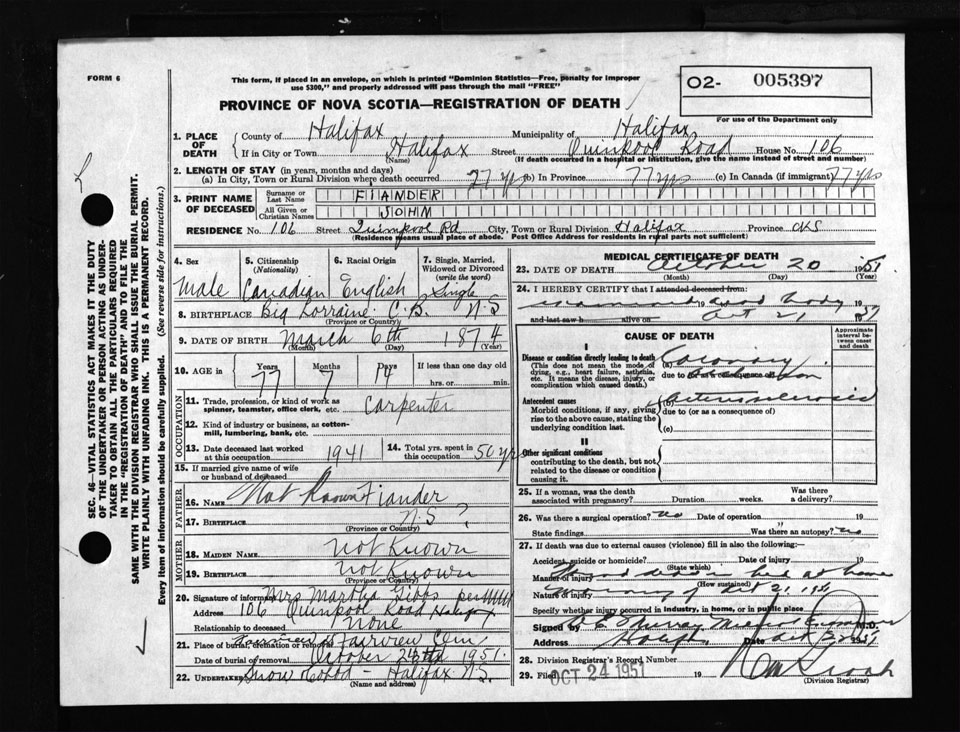 FORM 6
This form, if placed in an envelope, on which is printed "Dominion Statistics—Free, penalty for improper
use $300," and properly addressed will pass through the mail "FREE"
O2- 005397
For use of the Department only
PROVINCE OF NOVA SCOTIA—REGISTRATION OF DEATH
1. PLACE OF DEATH { County of Halifax Municipality of Halifax
If in City or Town Halifax (Name) Street Quinpool Road House No. 106
(If death occurred in a hospital or institution, give the name instead of street and number)
2. LENGTH OF STAY (in years, months and days)
(a) In City, Town or Rural Division where death occurred 77 yrs (b) In Province 77 yrs (c) In Canada (if immigrant) 77 yrs
3. PRINT NAME OF DECEASED { Surname or Last Name FIANDER
All Given or Christian Names JOHN
RESIDENCE No. 106 Street Quinpool Rd City, Town or Rural Division Halifax Province
(Residence means usual place of abode. Post Office Address for residents in rural parts not sufficient)
4. Sex Male
5. Citizenship (Nationality) Canadian
6. Racial Origin English
7. Single, Married, Widowed or Divorced (write the word) Single
8. BIRTHPLACE Big Lorraine C.B. N-S
(Province or Country)
9. DATE OF BIRTH March 6th 1874
(Month) (Day) (Year)
10. AGE in Years 77 Months 7 Days 14 If less than one day old
hrs. or min.
OCCUPATION
11. Trade, profession, or kind of work as
spinner, teamster, office clerk, etc. Carpenter
12. Kind of industry or business, as cotton-
mill, lumbering, bank, etc.
13. Date deceased last worked at this occupation 1941
14. Total yrs. spent in this occupation 50 yrs
15. If married give name of wife
or husband of deceased
FATHER
16. NAME Not Known Fiander
17. BIRTHPLACE N.S ?
(Province or Country)
MOTHER
18. MAIDEN NAME Not Known
19. BIRTHPLACE Not Known
(Province or Country)
20. Signature of informant Mrs Martha Gibbs per
Address 106 Quinpool Road Halifax
Relationship to deceased None
21. Place of burial, cremation or removal Fairview Cem
Date of burial or removal October 24th 1951.
22. Undertaker Snow Co Ltd - Halifax N.S.
(Name and address)
MEDICAL CERTIFICATE OF DEATH
23. DATE OF DEATH October 20 1951
(Month) (Day)
24. I HEREBY CERTIFY that I attended deceased from:
examined dead body 19
and last saw h alive on Oct 21 1951
CAUSE OF DEATH
Approximate interval between onset and death
I
Disease or condition directly leading to death (a) Coronary
(This does not mean the mode of
dying, e.g., heart failure, asthenia,
etc. It means the disease, injury, or
complication which caused death.)
due to (or as a consequence of)
Antecedent causes (b) arteriosclerosis
Morbid conditions, if any, giving
rise to the above cause, stating the
underlying condition last.
due to (or as a consequence of)
(c)
II
Other significant conditions
contributing to the death, but not
related to the disease or condition
causing it.
25. If a woman, was the death
associated with pregnancy? Duration weeks. Was there
a delivery?
26. Was there a surgical operation? no Date of operation 19
State findings Was there an autopsy? no
27. If death was due to external causes (violence) fill in also the following:—
Accident, suicide or homicide? Date of injury 19
(State which)
Manner of injury Found dead in bed at home
(How sustained)
Nature of injury morning of Oct 21, 1951
Specify whether injury occurred in industry, in home, or in public place
Signed by Murray Medical Examiner M.D.
Address Halifax Date Oct 1951
28. Division Registrar's Record Number
29. Filed OCT 24 1951 19
(Division Registrar)
SEC. 46—VITAL STATISTICS ACT MAKES IT THE DUTY
OF THE UNDERTAKER OR PERSON ACTING AS UNDER-
TAKER TO OBTAIN ALL THE PARTICULARS REQUIRED
IN THE "REGISTRATION OF DEATH" AND TO FILE THE
SAME WITH THE DIVISION REGISTRAR WHO SHALL ISSUE THE BURIAL PERMIT.
WRITE PLAINLY WITH UNFADING INK. THIS IS A PERMANENT RECORD.
Every item of information should be carefully supplied. (See reverse side for instructions.)